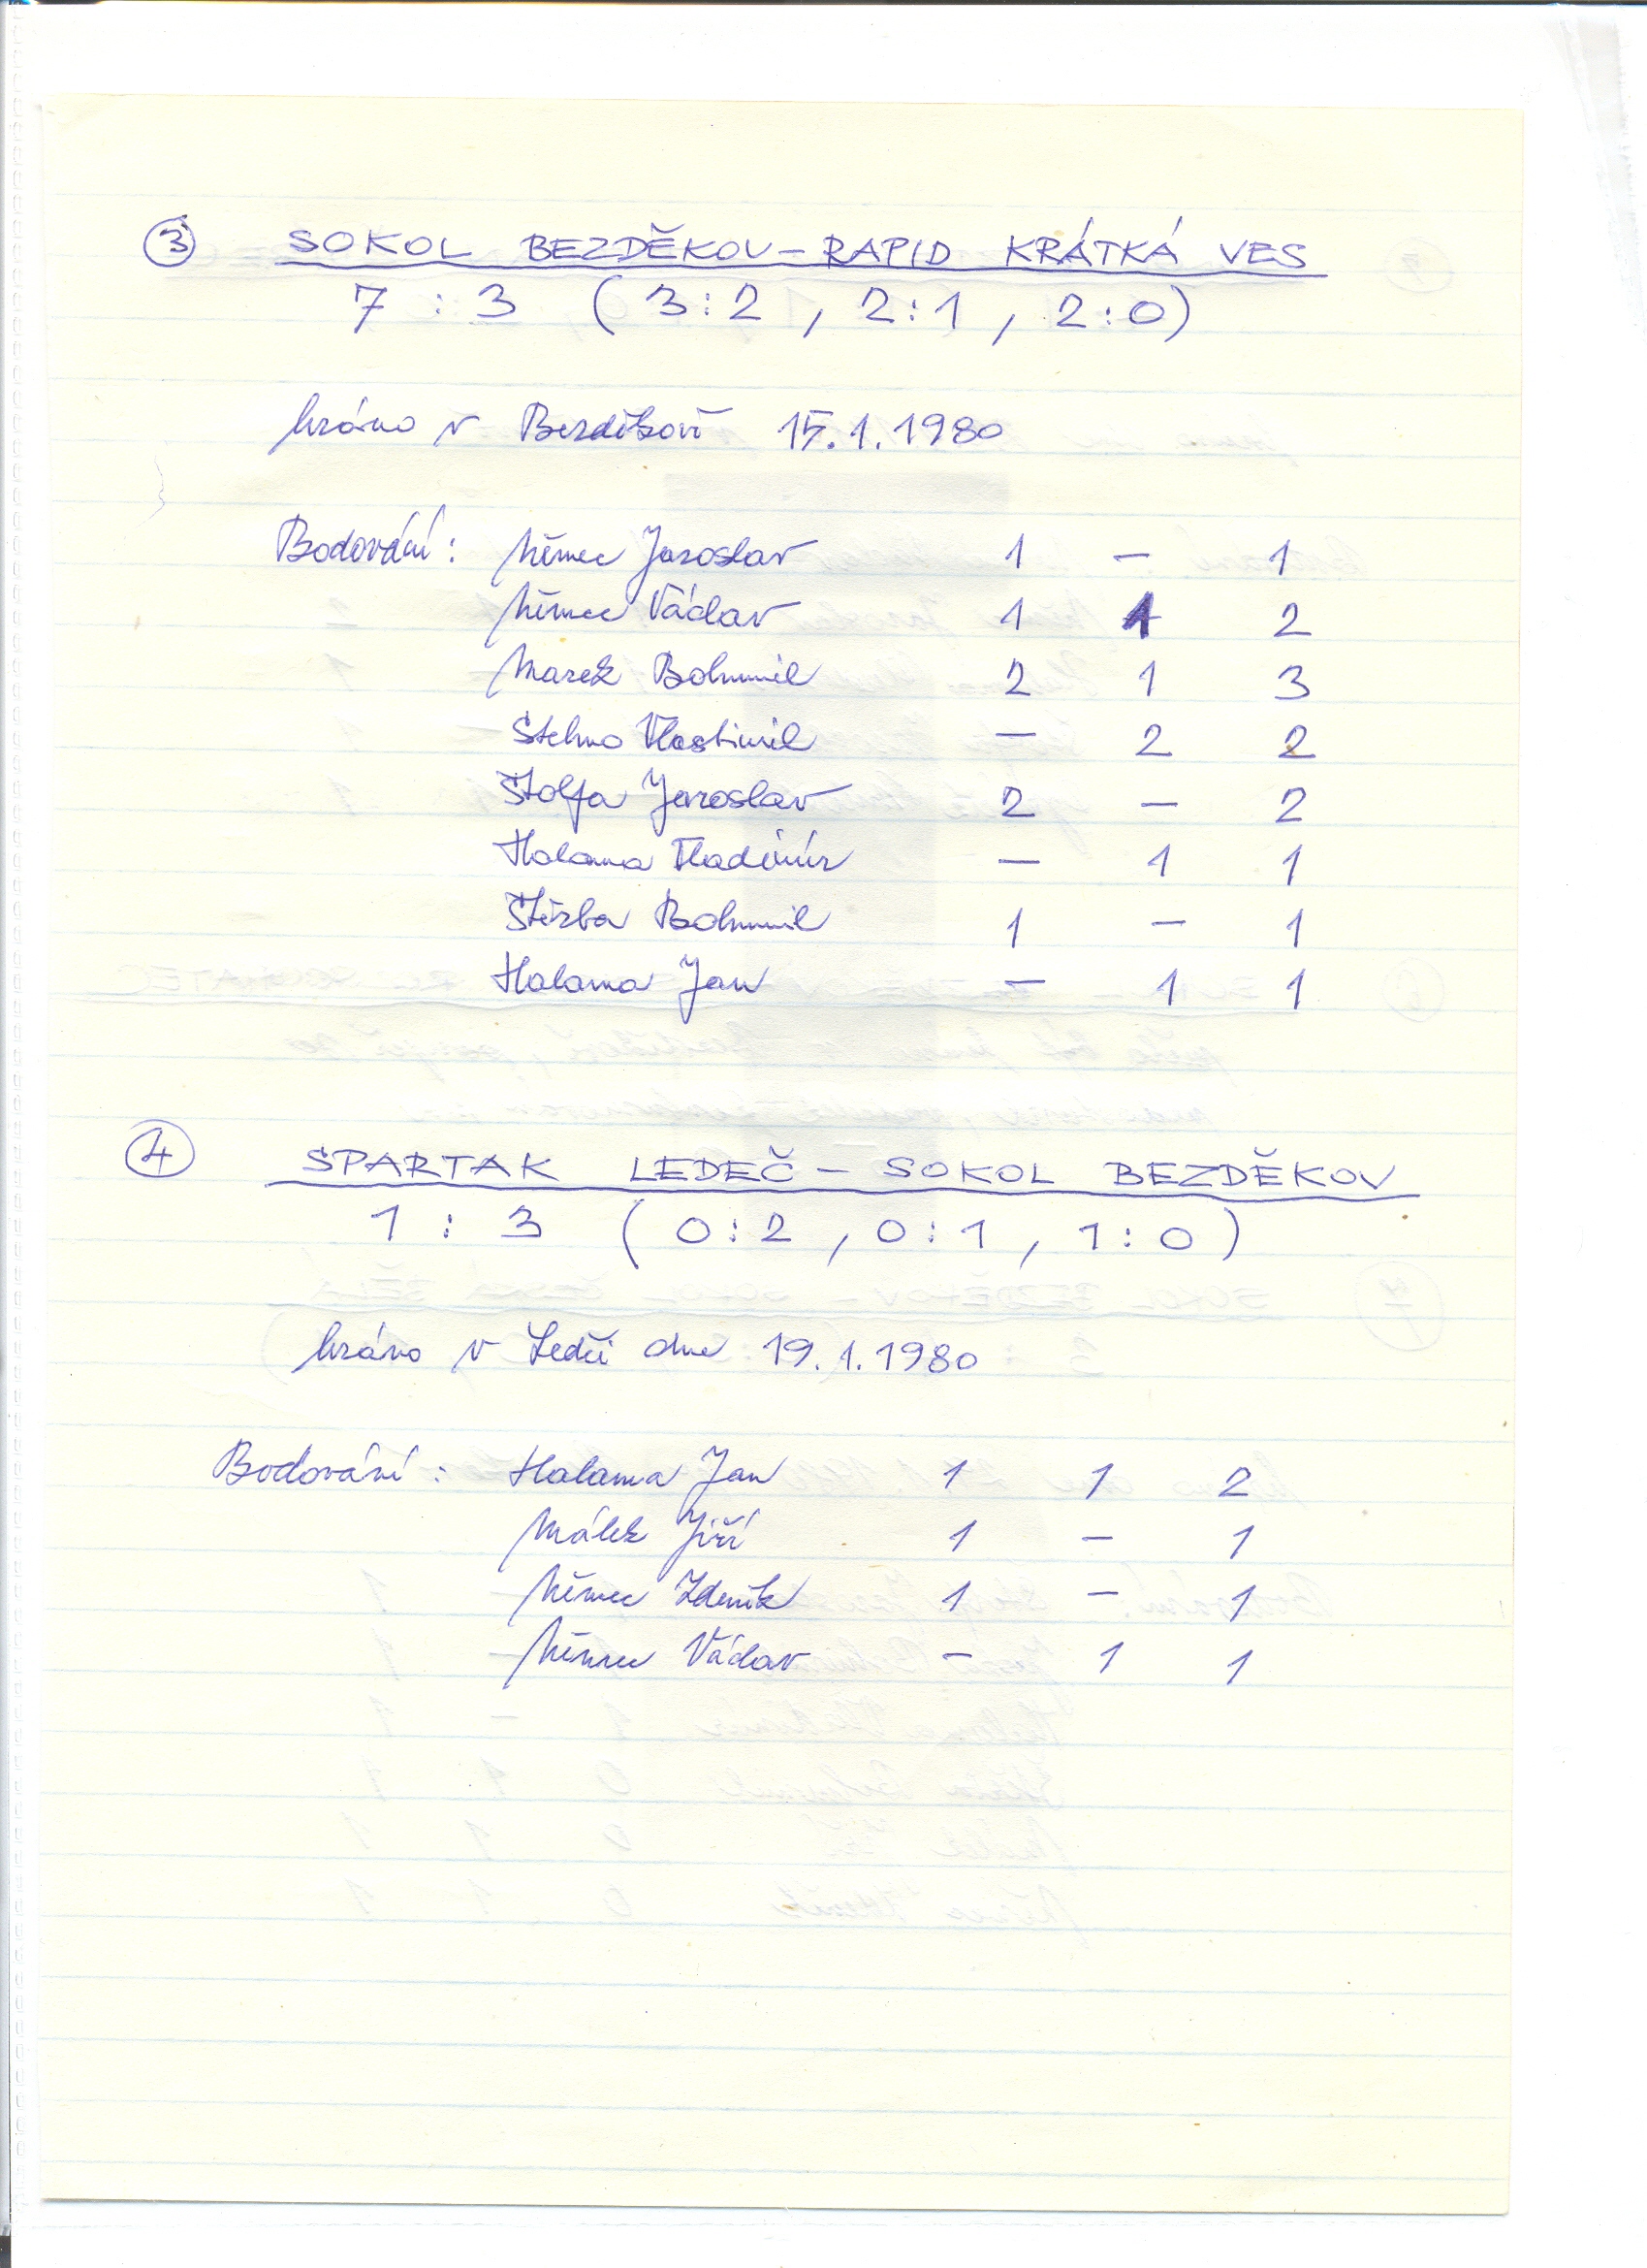 ③ SOKOL BEZDĚKOV – RAPID KRÁTKÁ VES
7 : 3 ( 3:2 , 2:1 , 2:0 )
hráno v Bezděkově 15.1.1980
Bodování: Němec Jaroslav 1 – 1
Němec Václav 1 1 2
Marek Bohumil 2 1 3
Stehno Vlastimil – 2 2
Štolfa Jaroslav 2 – 2
Halama Vladimír – 1 1
Štěrba Bohumil 1 – 1
Halama Jan – 1 1
④ SPARTAK LEDEČ – SOKOL BEZDĚKOV
1 : 3 ( 0:2 , 0:1 , 1:0 )
hráno v Ledči dne 19.1.1980
Bodování: Halama Jan 1 1 2
Málek Jiří 1 – 1
Němec Zdeněk 1 – 1
Němec Václav – 1 1